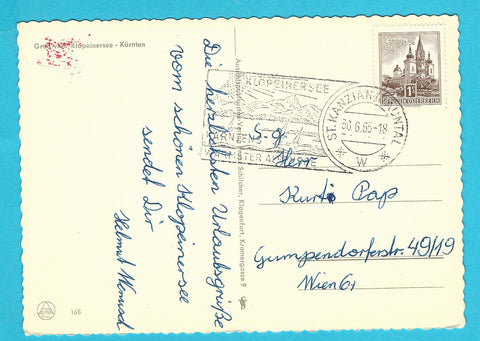 Gruß vom Klopeinersee - Kärnten
Die herzlichsten Urlaubsgrüße
vom schönen Klopeinersee
sendet Dir
Helmut
168
Schilcher, Klagenfurt, Kramergasse 9
KLOPEINERSEE
KÄRNTENS
WÄRMSTER
ST. KANZIAN
30.6.65-18
W
1S
REPUBLIK ÖSTERREICH
S.g.
Herrn
Kurt Pap
Gumpendorferstr. 49/19
Wien 6,